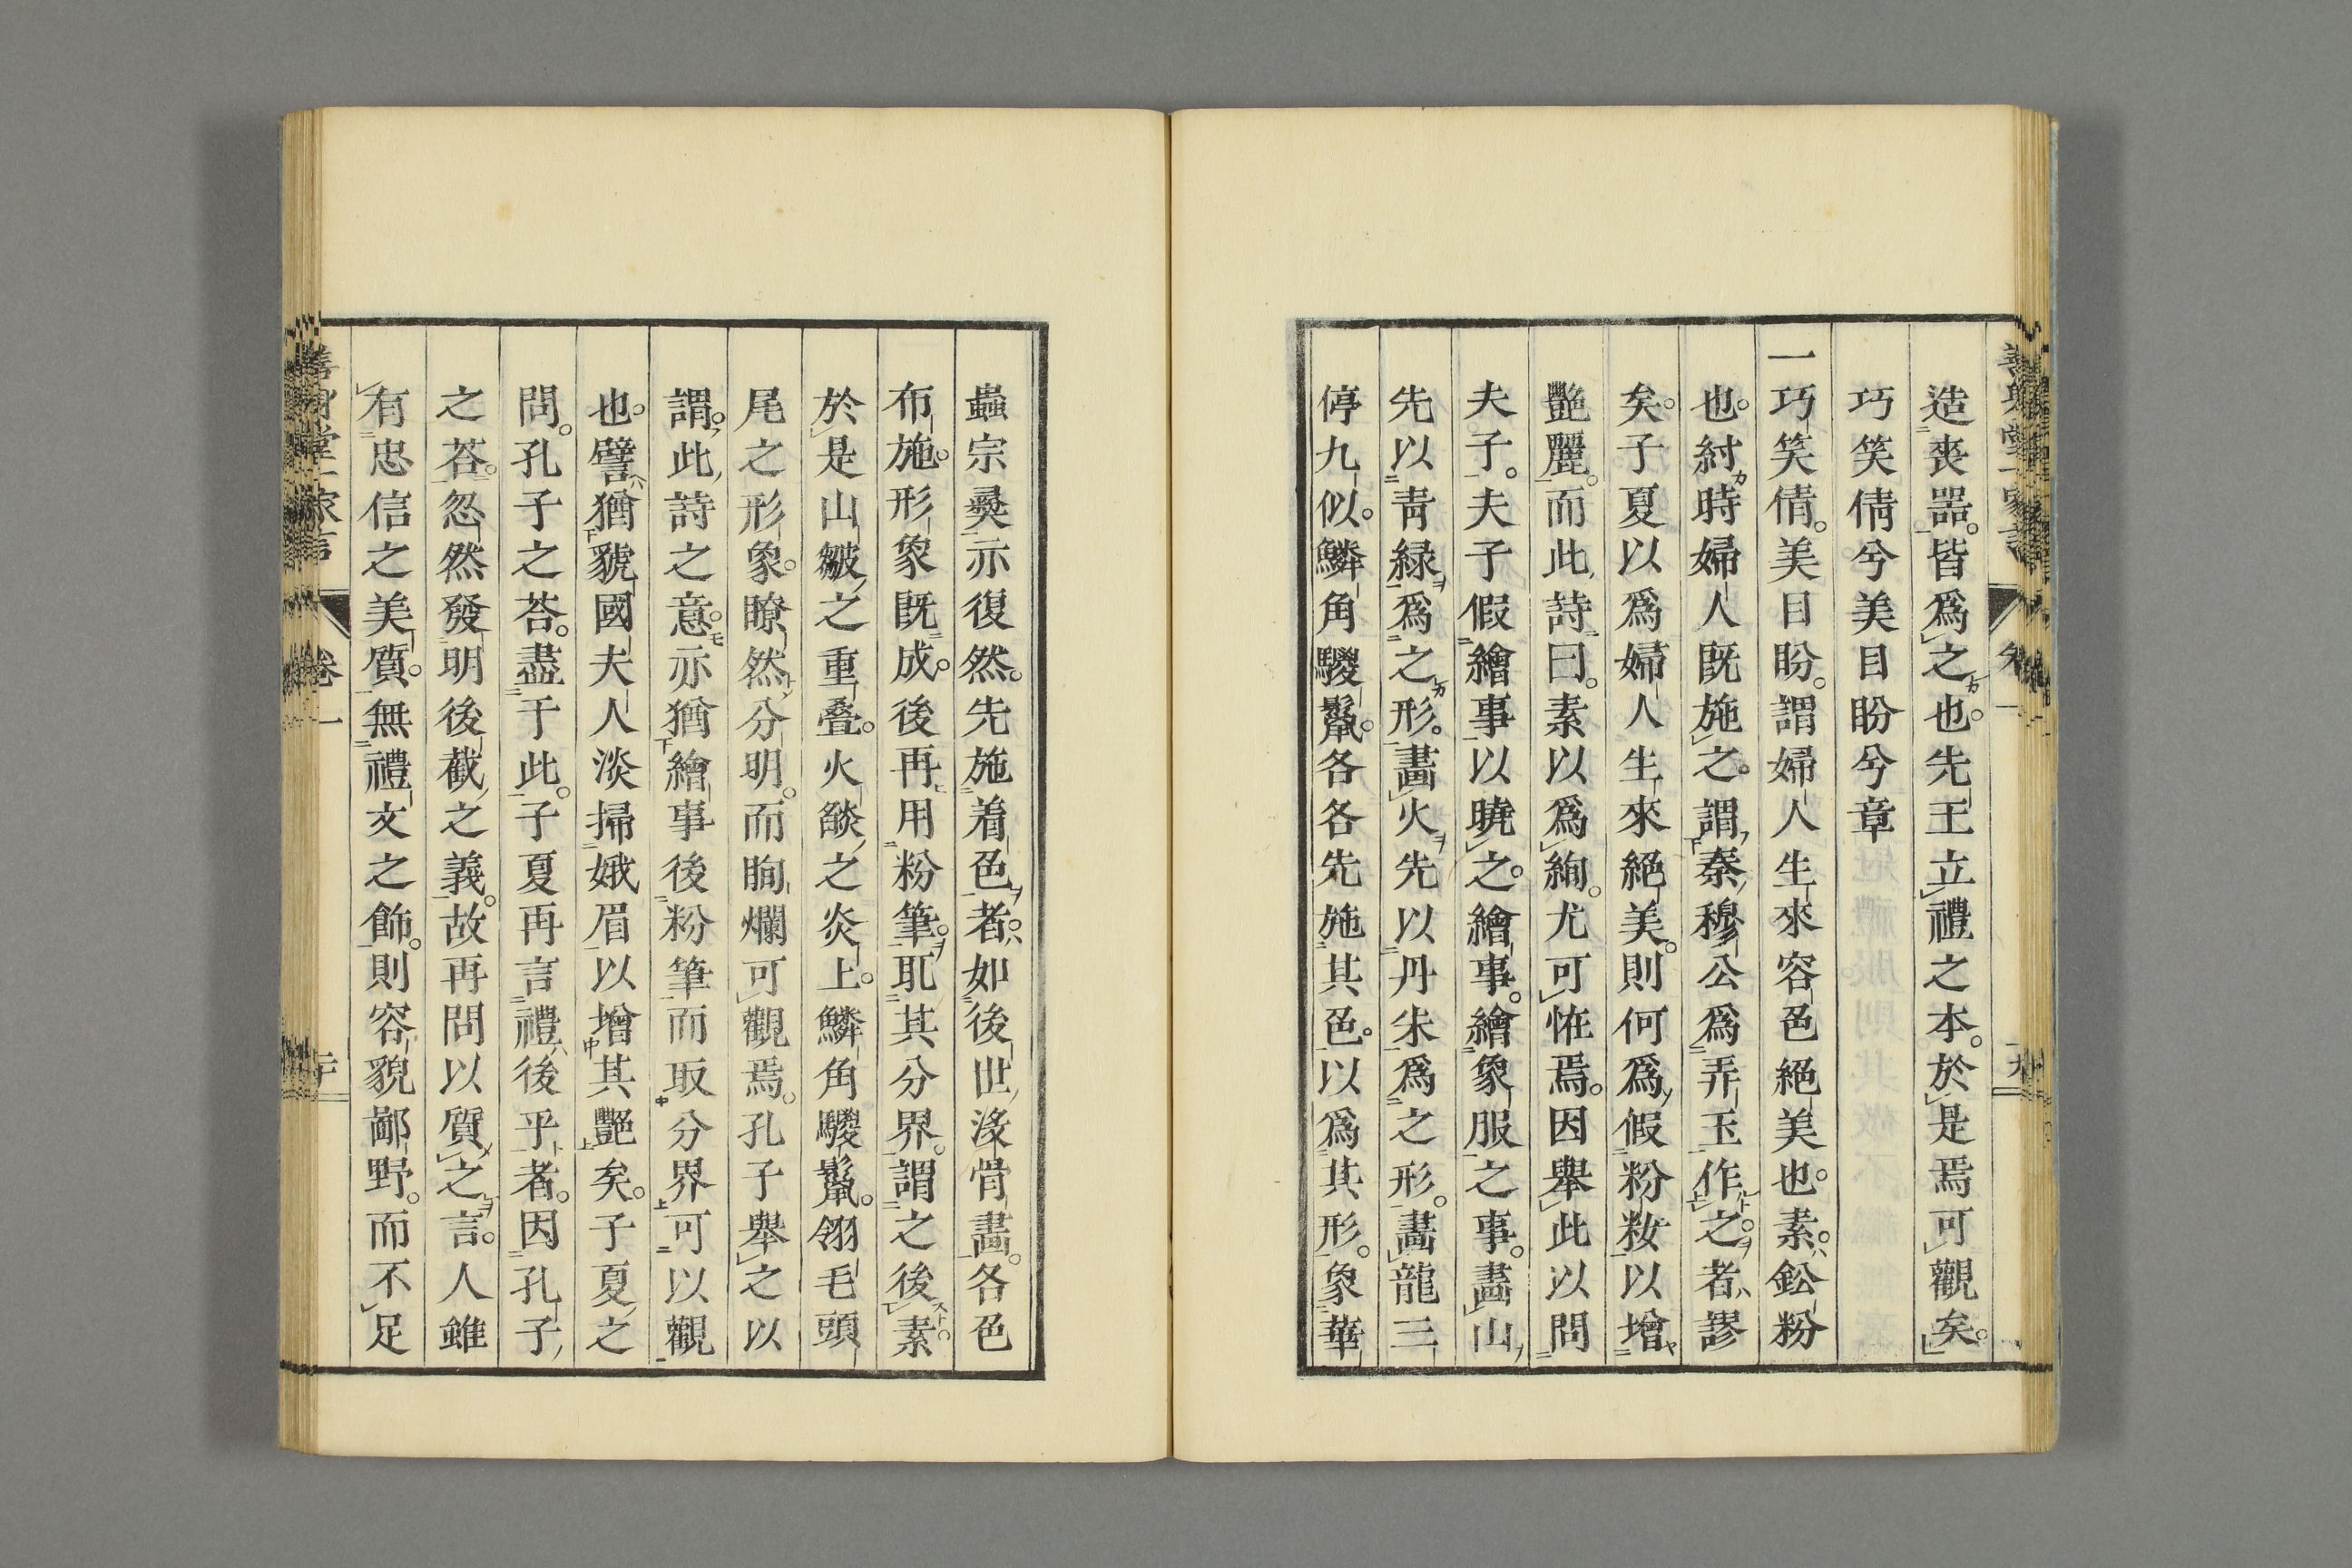 造喪噐皆爲之也先王立禮之本於是焉可觀矣
巧笑倩兮美目盼兮章
一巧笑倩美目盼謂婦人生來容色絕美也素鈆粉
也紂時婦人既施之謂秦穆公爲弄玉作之者謬
矣子夏以爲婦人生來絕美則何爲假粉粧以增
艷麗而此詩曰素以爲絢尤可恠焉因舉此以問
夫子夫子假繪事以曉之繪事繪象服之事畵山
先以靑緑爲之形畵火先以丹朱爲之形畵龍三
停九似鱗角騣鬣各各先施其色以爲其形象華
蟲宗彜亦復然先施着色者如後世淺骨畵各色
布施形象既成後再用粉筆取其分界謂之後素
於是山皴之重疊火燄之炎上鱗角騣鬣翎毛頭
尾之形象瞭然分明而眴爛可觀焉孔子舉之以
謂此詩之意亦猶繪事後粉筆而取分界可以觀
也譬猶虢國夫人淡掃娥眉以增其艷矣子夏之
問孔子之荅盡于此子夏再言禮後乎者因孔子
之荅忽然發明後截之義故再問以質之言人雖
有忠信之美質無禮文之飾則容貌鄙野而不足
卷一